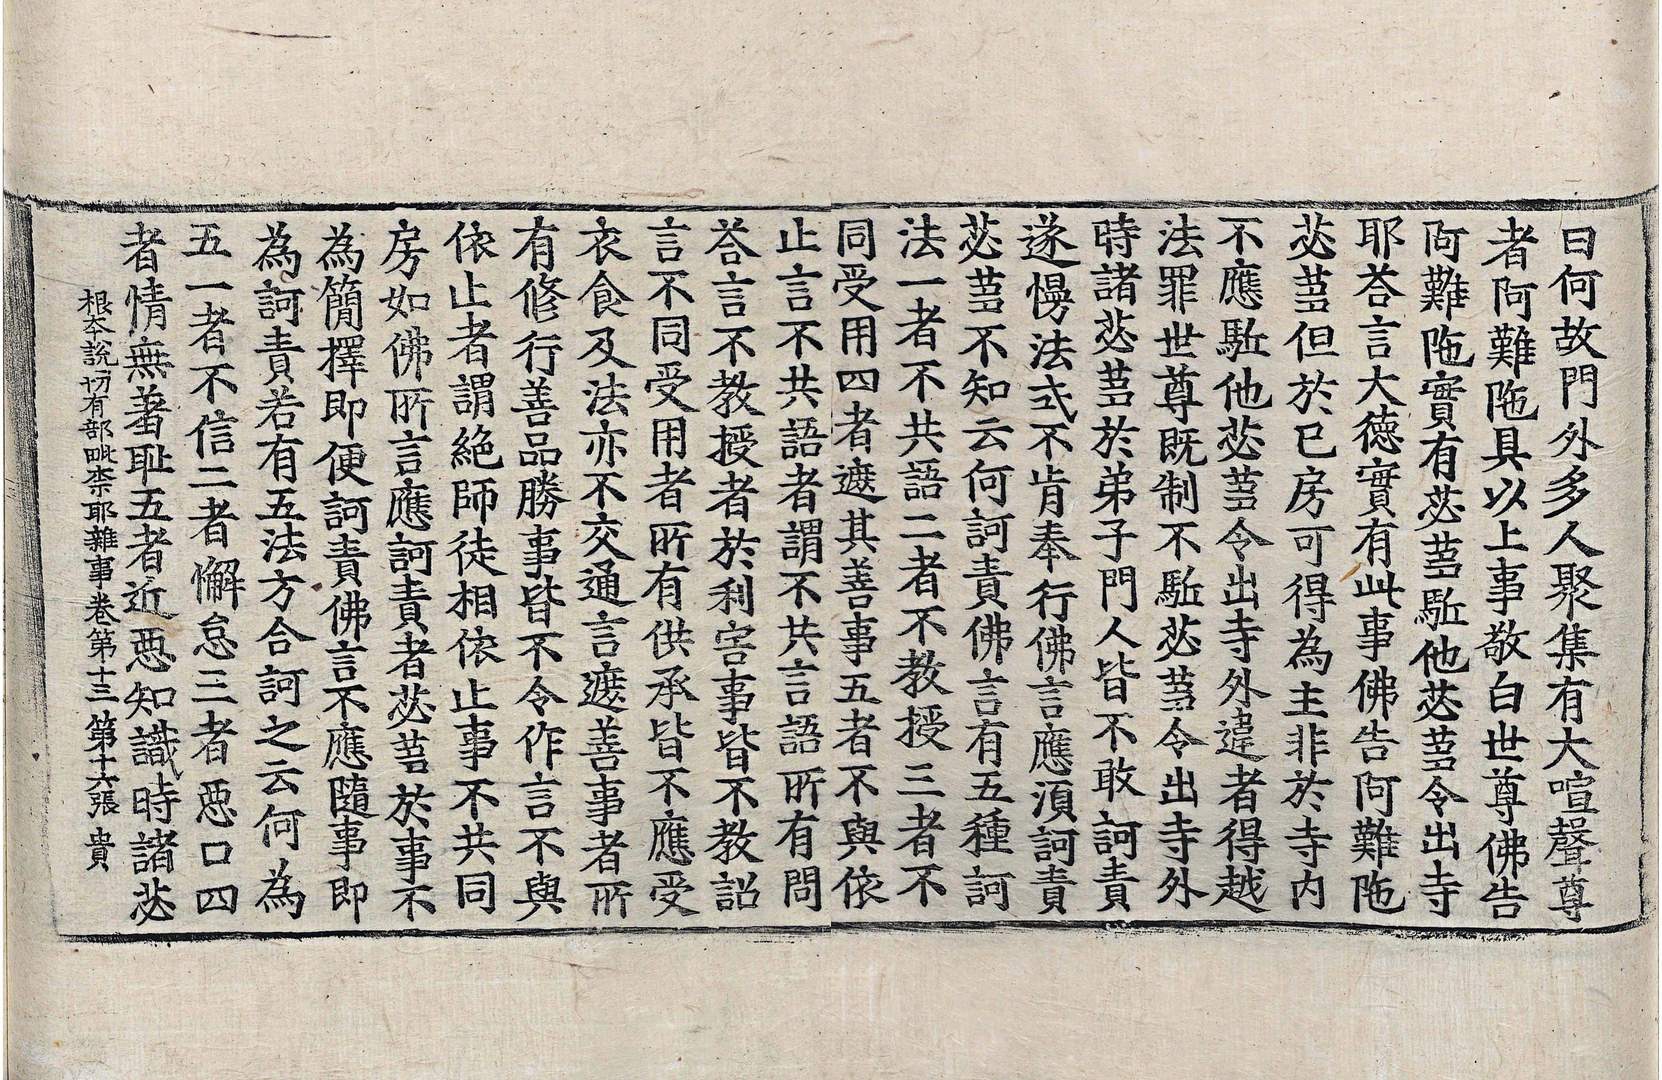 曰何故門外多人聚集有大喧聲尊
者阿難陁具以上事敬白世尊佛告
阿難陁實有苾蒭駈他苾蒭令出寺
耶荅言大德實有此事佛告阿難陁
苾蒭但於已房可得為主非於寺内
不應駈他苾蒭令出寺外違者得越
法罪世尊既制不駈苾蒭令出寺外
時諸苾蒭於弟子門人皆不敢訶責
遂慢法式不肯奉行佛言應湏訶責
苾蒭不知云何訶責佛言有五種訶
法一者不共語二者不教授三者不
同受用四者遮其善事五者不與依
止言不共語者謂不共言語所有問
荅言不教授者於利害事皆不教詔
言不同受用者所有供承皆不應受
衣食及法亦不交通言遮善事者所
有修行善品勝事皆不令作言不與
依止者謂絶師徒相依止事不共同
房如佛所言應訶責者苾蒭於事不
為簡擇即便訶責佛言不應隨事即
為訶責若有五法方合訶之云何為
五一者不信二者懈怠三者惡口四
者情無羞耻五者近惡知識時諸苾
根本說一切有部毗柰耶雜事卷第十三 第十六張 貴